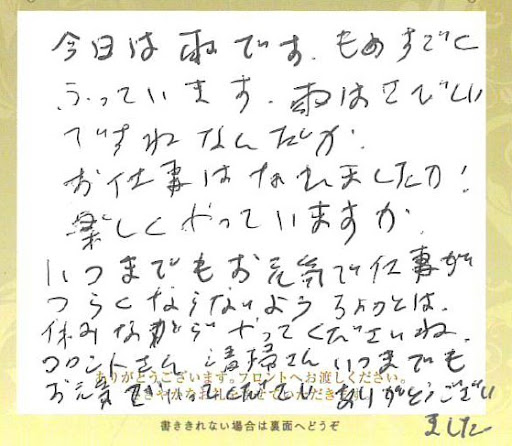 今日は雨です。ものすごく
ふっています。雨はさびしい
ですねなんだか。
お仕事はなれましたか！
楽しくやっていますか。
いつまでもお元気で仕事が
つらくならないよう
休みながらやってくださいね。
フロントさん 清掃さん いつまでも
ありがとうございます。フロントへお渡しください。
お元気で ありがとうござい
ました
書ききれない場合は裏面へどうぞ